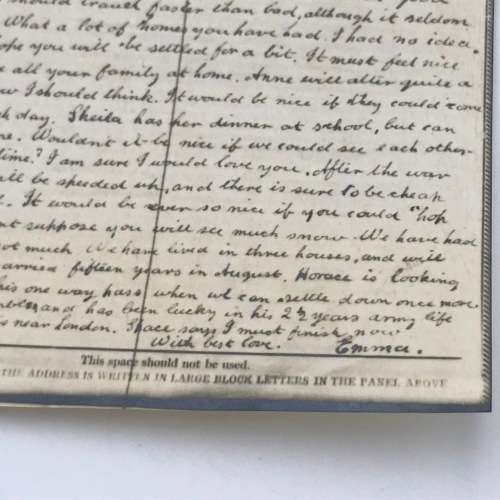 should travel faster than bad, although it seldom
What a lot of homes you have had. I had no idea.
hope you will be settled for a bit. It must feel nice
all your family at home. Anne will alter quite a
I should think. It would be nice if they could come
day. Sheila has her dinner at school, but can
Wouldn't it be nice if we could see each other
time? I am sure I would love you. After the war
be speeded up, and there is sure to be cheap
It would be ever so nice if you could "hop
suppose you will see much snow. We have had
not much. We have lived in three houses, and will
married fifteen years in August. Horace is looking
his one way pass when we can settle down once more.
and has been lucky in his 2½ years army life
near London. Space says I must finish now
With best love. Emma.
This space should not be used.
THE ADDRESS IS WRITTEN IN LARGE BLOCK LETTERS IN THE PANEL ABOVE